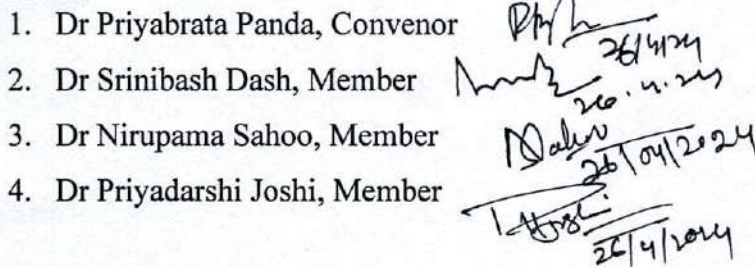 1. Dr Priyabrata Panda, Convenor
26/4/24
2. Dr Srinibash Dash, Member
26.4.24
3. Dr Nirupama Sahoo, Member
26/04/2024
4. Dr Priyadarshi Joshi, Member
26/4/2024